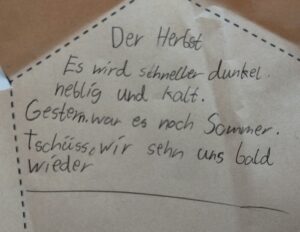 Der Herbst
Es wird schneller dunkel.
neblig und kalt.
Gestern war es noch Sommer.
Tschüss, wir sehn uns bald
wieder